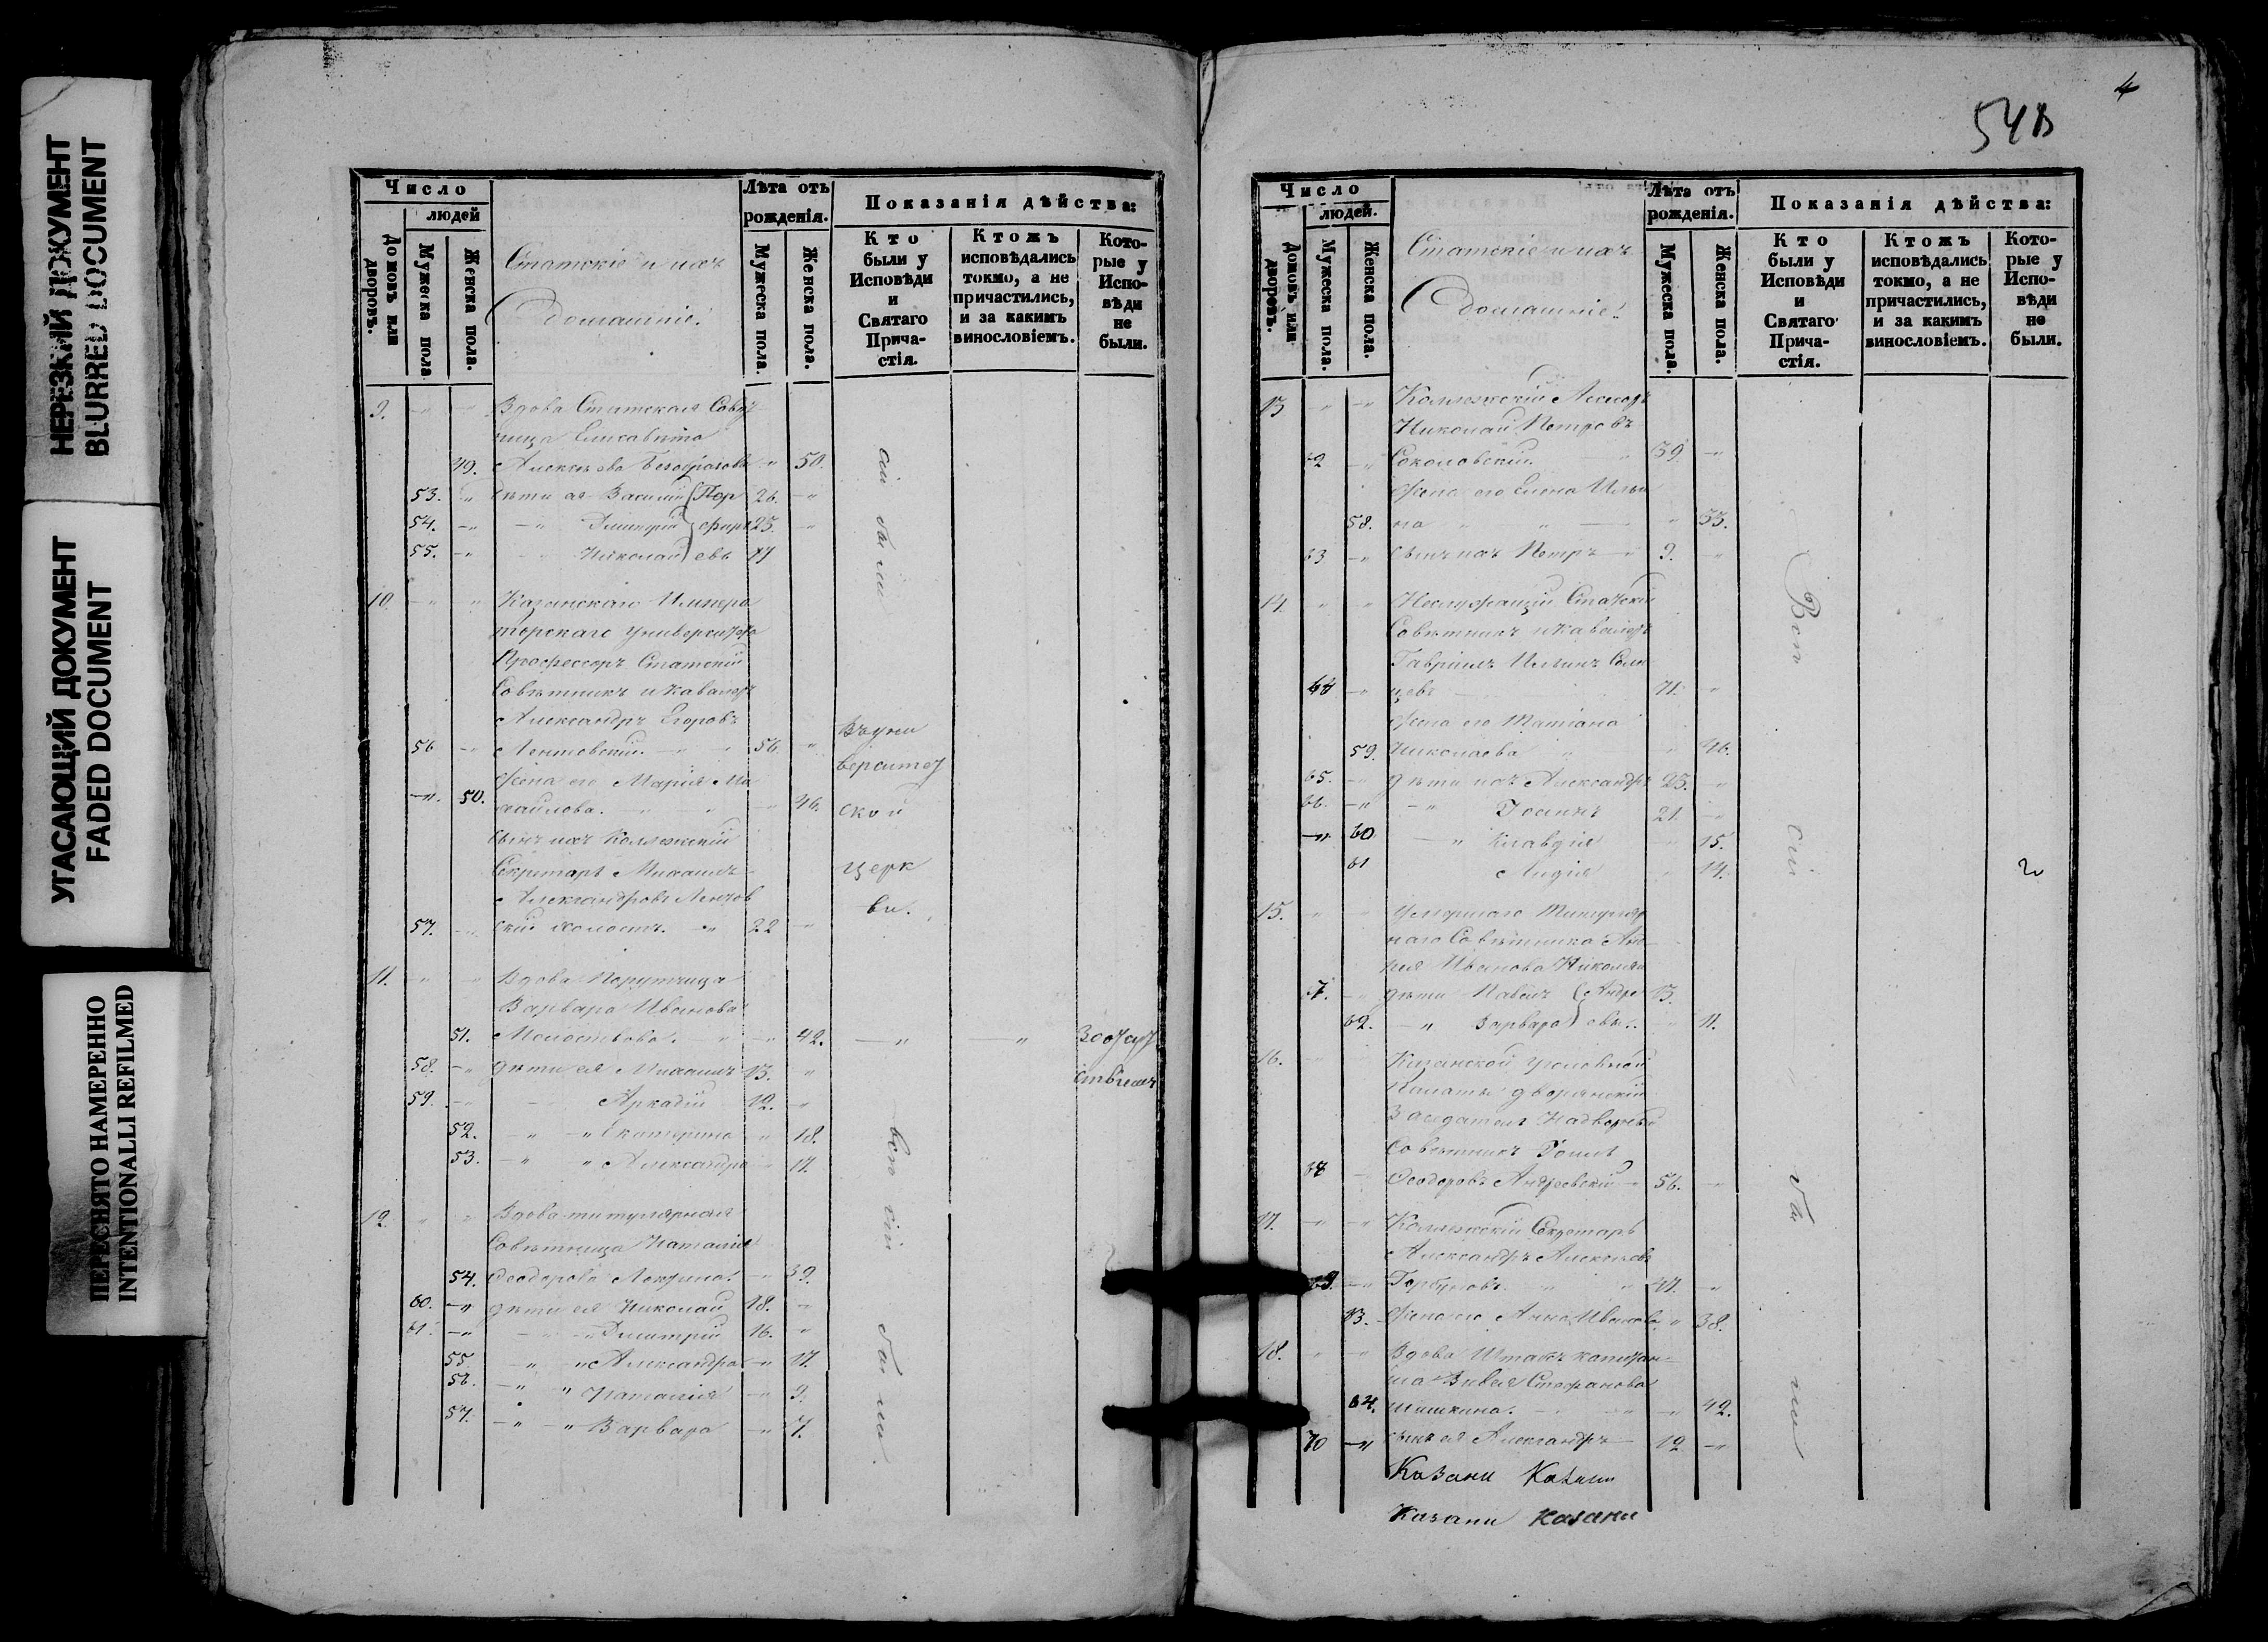 НЕРЕЗКИЙ ДОКУМЕНТ
BLURRED DOCUMENT
УГАСАЮЩИЙ ДОКУМЕНТ
FADED DOCUMENT
ПЕРЕСНЯТО НАМЕРЕННО
INTENTIONALLI REFILMED
Число
людей
Домовъ или дворовъ.
Мужеска пола.
Женска пола.
Статскіе и ихъ
Домашніе.
Лѣта отъ рожденія.
Мужеска пола.
Женска пола.
Показанія дѣйства:
Кто были у Исповѣди и Святаго Прича-стія.
Ктожъ исповѣдались токмо, а не причастились, и за какимъ винословіемъ.
Кото-рые у Испо-вѣди не были.
9. Вдова Статская Совѣт
ница Елисавета
49. Алексѣева 50.
53. дѣти ея Василій (Пор 26.
54. Димитрій фирі 25.
55. Николай евы 17
сіи были
10. Казанскаго Импера
торскаго Университета
Профессоръ Статскій
Совѣтникъ и Кавалеръ
Александръ Егоровъ
56 Лентовскій. 56.
жена его Марія Ми
50. хаилова. 46.
сынъ ихъ Коллежскій
Секретарь Михаилъ
Александровъ Лентов
57. скій холостъ. 22
Въ уни
верситет
ской
церк
ви.
11. Вдова Порутчица
Варвара Иванова
51. Молоствова. 42.
58. дѣти ея Михаилъ 13.
За отсут
ствіемъ
59. Аркадій 12.
52. Екатерина 18.
53. Александра 17.
12. Вдова титулярная
Совѣтница Наталія
54. Феодорова 39.
60. дѣти ея Николай 18.
61. Димитрій 16.
55. Александра 17.
56. Наталія 9.
57. Варвара 7.
всѣ сіи были
4
54В
Число
людей.
Домовъ или дворовъ.
Мужеска пола.
Женска пола.
Статскіе и ихъ
Домашніе.
Лѣта отъ рожденія.
Мужеска пола.
Женска пола.
Показанія дѣйства:
Кто были у Исповѣди и Святаго Прича-стія.
Ктожъ исповѣдались токмо, а не причастились, и за какимъ винословіемъ.
Кото-рые у Испо-вѣди не были.
13 Коллежскій Ассесоръ
Николай Петровъ
62 Соколовскій. 39
жена его Елена Ильи
58. на 33.
63 сынъ ихъ Петръ 9.
14. Неслужащій Статскій
Совѣтникъ и Кавалеръ
Гавріилъ Ильинъ Солн
64 цевъ 71.
жена его Татіана
59. Николаева 46.
65. дѣти ихъ Александръ 23.
66. Іоаннъ 21.
60 Клавдія 15.
61 Лидія 14.
15. Умершаго Титуляр
наго Совѣтника
Иванова
67. дѣти Павелъ (Андре 13.
62. Варвара евы. 11.
16. Казанской Уголовной
Палаты дворянскій
Засѣдатель Надворный
Совѣтникъ
68 Феодоровъ Андреевскій 56.
17. Коллежскій Секретарь
Александръ Алексѣевъ
69. Горбуновъ. 47.
63. жена его Анна Иванова 38.
18. Вдова Штабъ капитан
ша Стефанова
64. Шишкина. 42.
70 сынъ ея Александръ 12
Всѣ сіи были
Казани Казани
Казани Казани